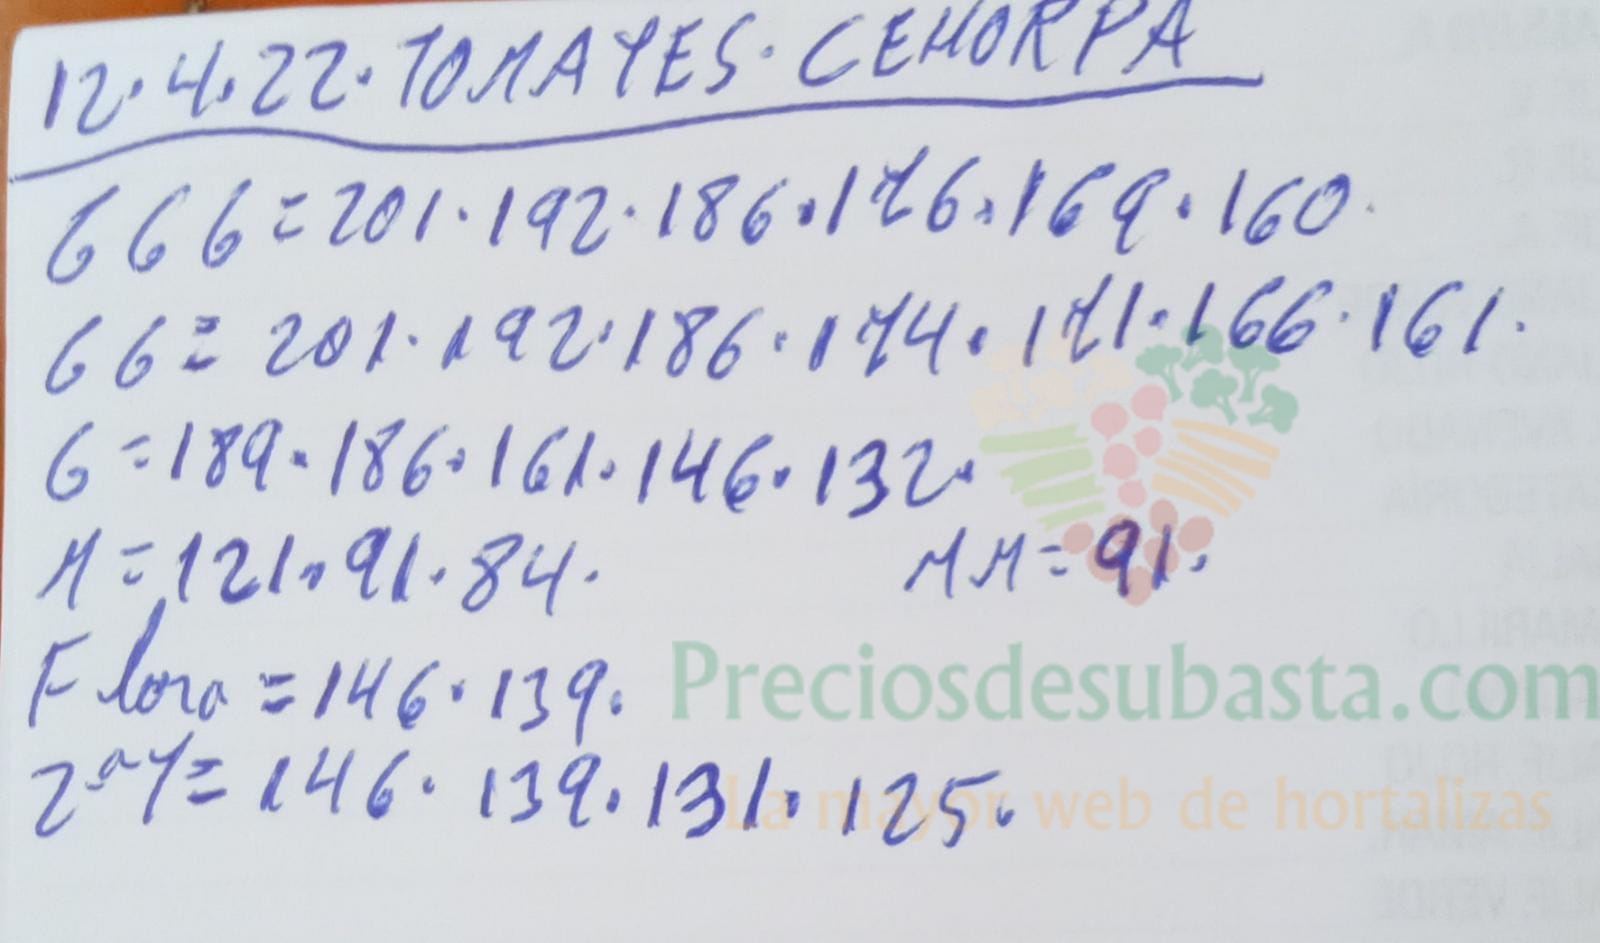 12.4.22. TOMATES. CEHORPA
GGG = 201. 192. 186. 176. 169. 160.
GG = 201. 192. 186. 174. 171. 166. 161.
G = 189. 186. 161. 146. 132.
M = 121. 91. 84. MM = 91.
Flora = 146. 139.
2ª Y = 146. 139. 131. 125.
Preciosdesubasta.com
La mayor web de hortalizas